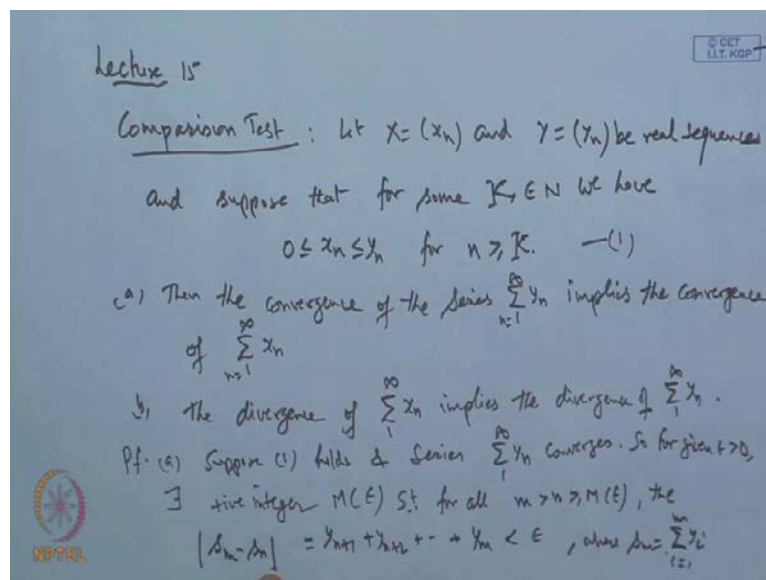 Lecture 15
© CET
I.I.T. KGP
Comparision Test : Let X = (xn) and Y = (yn) be real sequences
and suppose that for some K ∈ N we have
0 ≤ xn ≤ yn for n ≥ K. —(1)
(a) Then the convergence of the series ∑_{n=1}^{∞} yn implies the convergence
of ∑_{n=1}^{∞} xn
b, the divergence of ∑_{1}^{∞} xn implies the divergence of ∑_{1}^{∞} yn.
Pf. (a) Suppose (1) holds & series ∑_{1}^{∞} yn converges. So for given ε>0,
∃ +ive integer M(ε) S.t. for all m > n ≥ M(ε), the
|sm - sn| = yn+1 + yn+2 + -- + ym < ε, where sm = ∑_{i=1}^{m} yi
NPTEL